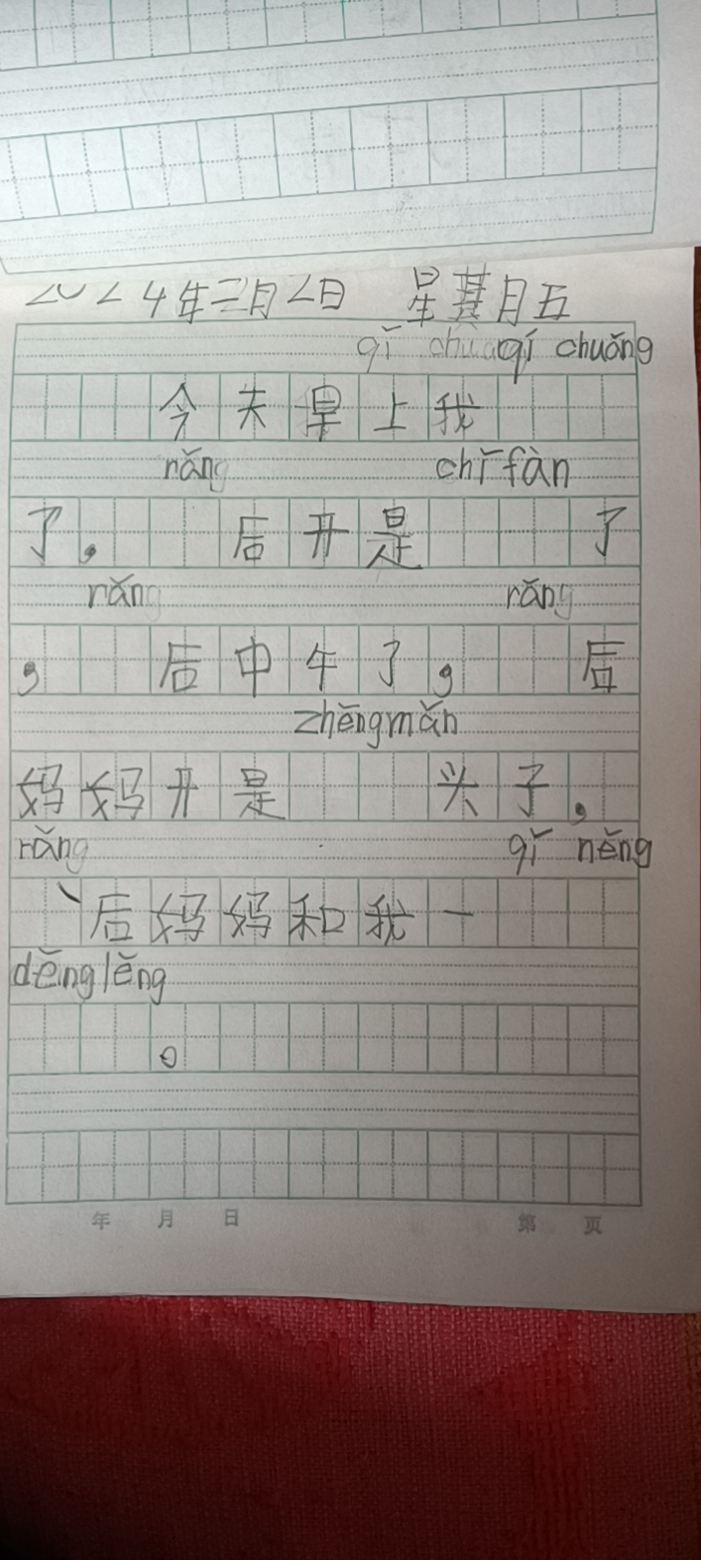 2024年二月2日 星期五
qǐ chuáng qǐ chuǎng
今天早上我
rǎng chǐ fàn
了，后开是了
rǎng rǎng
，后中午了，后
zhěngmǎn
妈妈开是头子，
rǎng qǐ něng
、后妈妈和我一
děng lěng
。
年 月 日 第 页